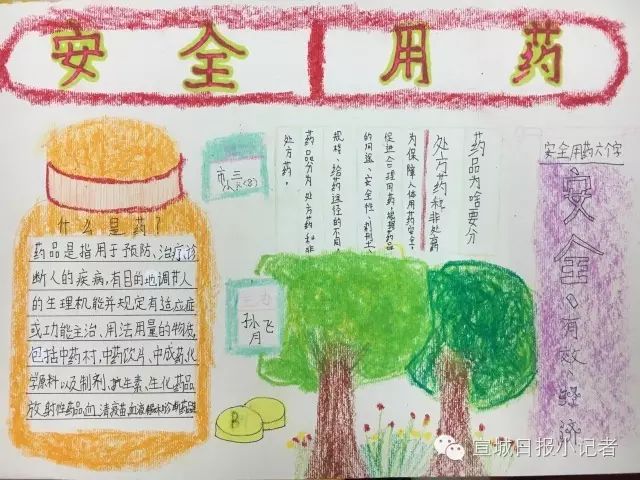 安全用药
什么是药?
药品是指用于预防、治疗、诊
断人的疾病,有目的地调节人
的生理机能并规定有适应症
或功能主治、用法用量的物质,
包括中药材,中药饮片、中成药、化
学原料以及制剂、抗生素、生化药品
放射性药品血清疫苗血液
药品为啥要分
处方药和非处
为保障人体用药安全
促进合理用药,根据药品
的用途、安全性、剂型
规格、给药途径的不同
药品分为处方药和非
处方药。
孙飞
月
B
安全用药六个字
安全、有效、经济
宣城日报小记者